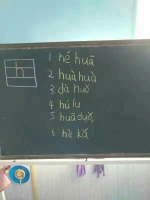 h
1 hé huā
2 huà huà
3 dà huǒ
4 hú lu
5 huā duǒ
6 hē